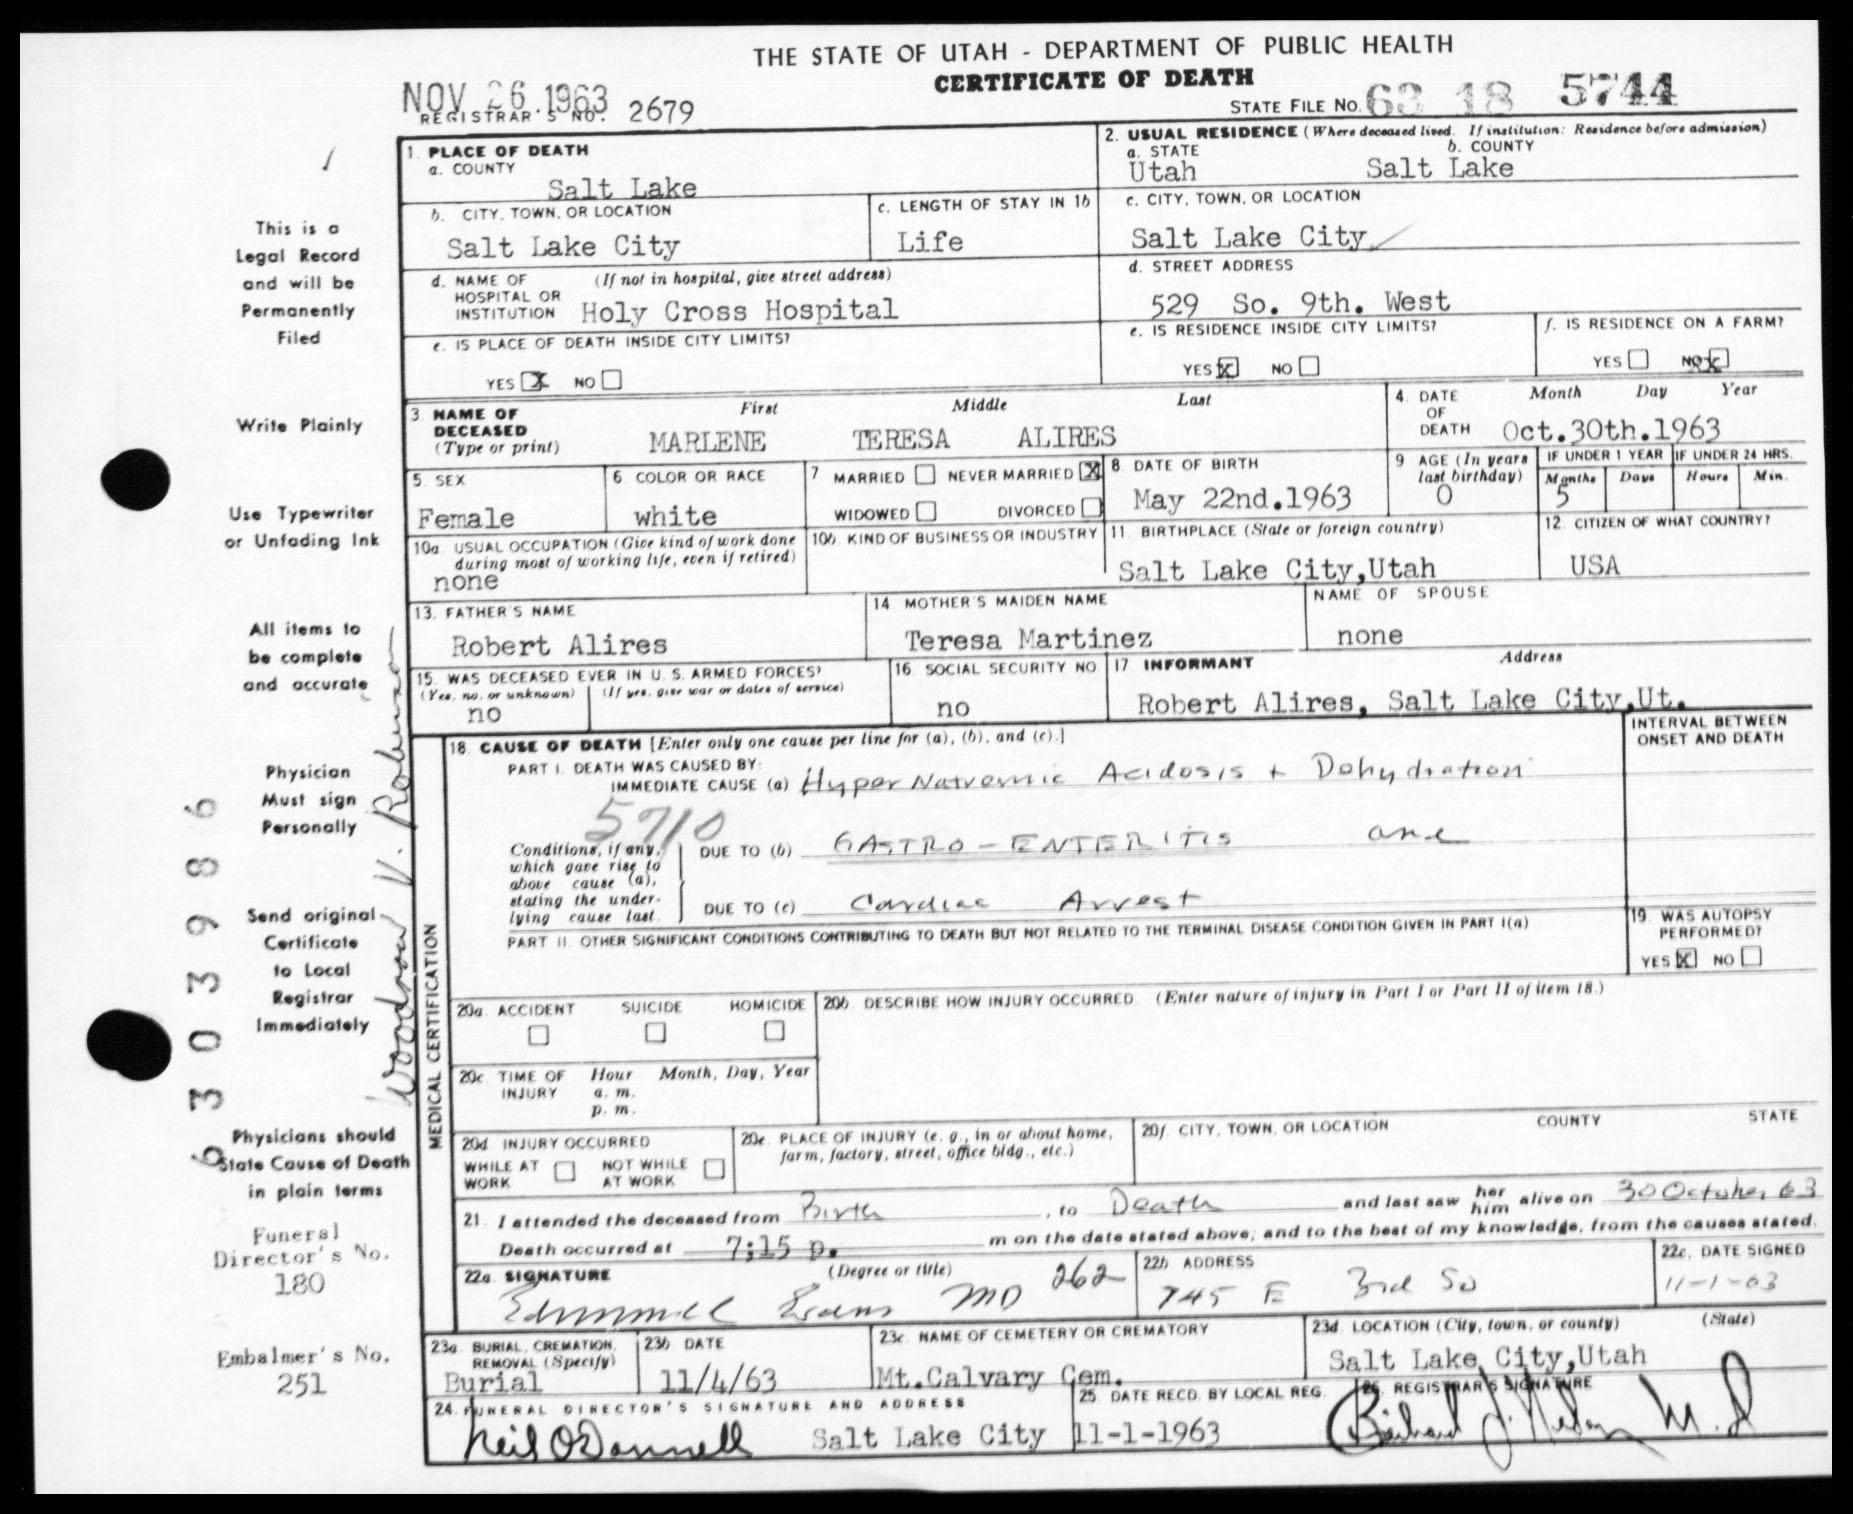 THE STATE OF UTAH - DEPARTMENT OF PUBLIC HEALTH
CERTIFICATE OF DEATH
NOV 26.1963
REGISTRAR'S NO. 2679
STATE FILE NO. 63 18 5744
1. PLACE OF DEATH
a. COUNTY
Salt Lake
2. USUAL RESIDENCE (Where deceased lived. If institution: Residence before admission)
a. STATE b. COUNTY
Utah Salt Lake
b. CITY, TOWN, OR LOCATION
Salt Lake City
c. LENGTH OF STAY IN 1b
Life
c. CITY, TOWN, OR LOCATION
Salt Lake City
d. NAME OF HOSPITAL OR INSTITUTION (If not in hospital, give street address)
Holy Cross Hospital
d. STREET ADDRESS
529 So. 9th. West
e. IS PLACE OF DEATH INSIDE CITY LIMITS?
YES X NO
e. IS RESIDENCE INSIDE CITY LIMITS?
YES X NO
f. IS RESIDENCE ON A FARM?
YES NO X
3. NAME OF DECEASED (Type or print)
First Middle Last
MARLENE TERESA ALIRES
4. DATE OF DEATH Month Day Year
Oct.30th.1963
5. SEX
Female
6. COLOR OR RACE
white
7. MARRIED NEVER MARRIED X
WIDOWED DIVORCED
8. DATE OF BIRTH
May 22nd.1963
9. AGE (In years last birthday)
0
IF UNDER 1 YEAR IF UNDER 24 HRS.
Months Days Hours Min.
5
10a. USUAL OCCUPATION (Give kind of work done during most of working life, even if retired)
none
10b. KIND OF BUSINESS OR INDUSTRY
11. BIRTHPLACE (State or foreign country)
Salt Lake City,Utah
12. CITIZEN OF WHAT COUNTRY?
USA
13. FATHER'S NAME
Robert Alires
14. MOTHER'S MAIDEN NAME
Teresa Martinez
NAME OF SPOUSE
none
15. WAS DECEASED EVER IN U. S. ARMED FORCES?
(Yes, no, or unknown) (If yes, give war or dates of service)
no
16. SOCIAL SECURITY NO.
no
17. INFORMANT Address
Robert Alires, Salt Lake City,Ut.
MEDICAL CERTIFICATION
18. CAUSE OF DEATH [Enter only one cause per line for (a), (b), and (c).]
INTERVAL BETWEEN ONSET AND DEATH
PART I. DEATH WAS CAUSED BY:
IMMEDIATE CAUSE (a) Hyper Natremic Acidosis + Dehydration
5710
Conditions, if any, which gave rise to above cause (a), stating the underlying cause last.
DUE TO (b) GASTRO-ENTERITIS and
DUE TO (c) Cardiac Arrest
PART II. OTHER SIGNIFICANT CONDITIONS CONTRIBUTING TO DEATH BUT NOT RELATED TO THE TERMINAL DISEASE CONDITION GIVEN IN PART I(a)
19. WAS AUTOPSY PERFORMED?
YES X NO
20a. ACCIDENT SUICIDE HOMICIDE
20b. DESCRIBE HOW INJURY OCCURRED. (Enter nature of injury in Part I or Part II of item 18.)
20c. TIME OF INJURY Hour Month, Day, Year
a. m.
p. m.
20d. INJURY OCCURRED
WHILE AT WORK NOT WHILE AT WORK
20e. PLACE OF INJURY (e. g., in or about home, farm, factory, street, office bldg., etc.)
20f. CITY, TOWN, OR LOCATION COUNTY STATE
21. I attended the deceased from Birth, to Death and last saw her him alive on 30 October 63
Death occurred at 7;15 p. m on the date stated above; and to the best of my knowledge, from the causes stated.
22a. SIGNATURE (Degree or title)
Evans MD 262
22b. ADDRESS
745 E 3rd So
22c. DATE SIGNED
11-1-63
23a. BURIAL, CREMATION, REMOVAL (Specify)
Burial
23b. DATE
11/4/63
23c. NAME OF CEMETERY OR CREMATORY
Mt.Calvary Cem.
23d. LOCATION (City, town, or county) (State)
Salt Lake City,Utah
24. FUNERAL DIRECTOR'S SIGNATURE AND ADDRESS
Neil O'Donnell Salt Lake City
25. DATE RECD. BY LOCAL REG.
11-1-1963
26. REGISTRAR'S SIGNATURE
M.D
This is a
Legal Record
and will be
Permanently
Filed
Write Plainly
Use Typewriter
or Unfading Ink
All items to
be complete
and accurate
Physician
Must sign
Personally
Send original
Certificate
to Local
Registrar
Immediately
Physicians should
State Cause of Death
in plain terms
Funeral
Director's No.
180
Embalmer's No.
251
6303986
Woodrow V. Robinson